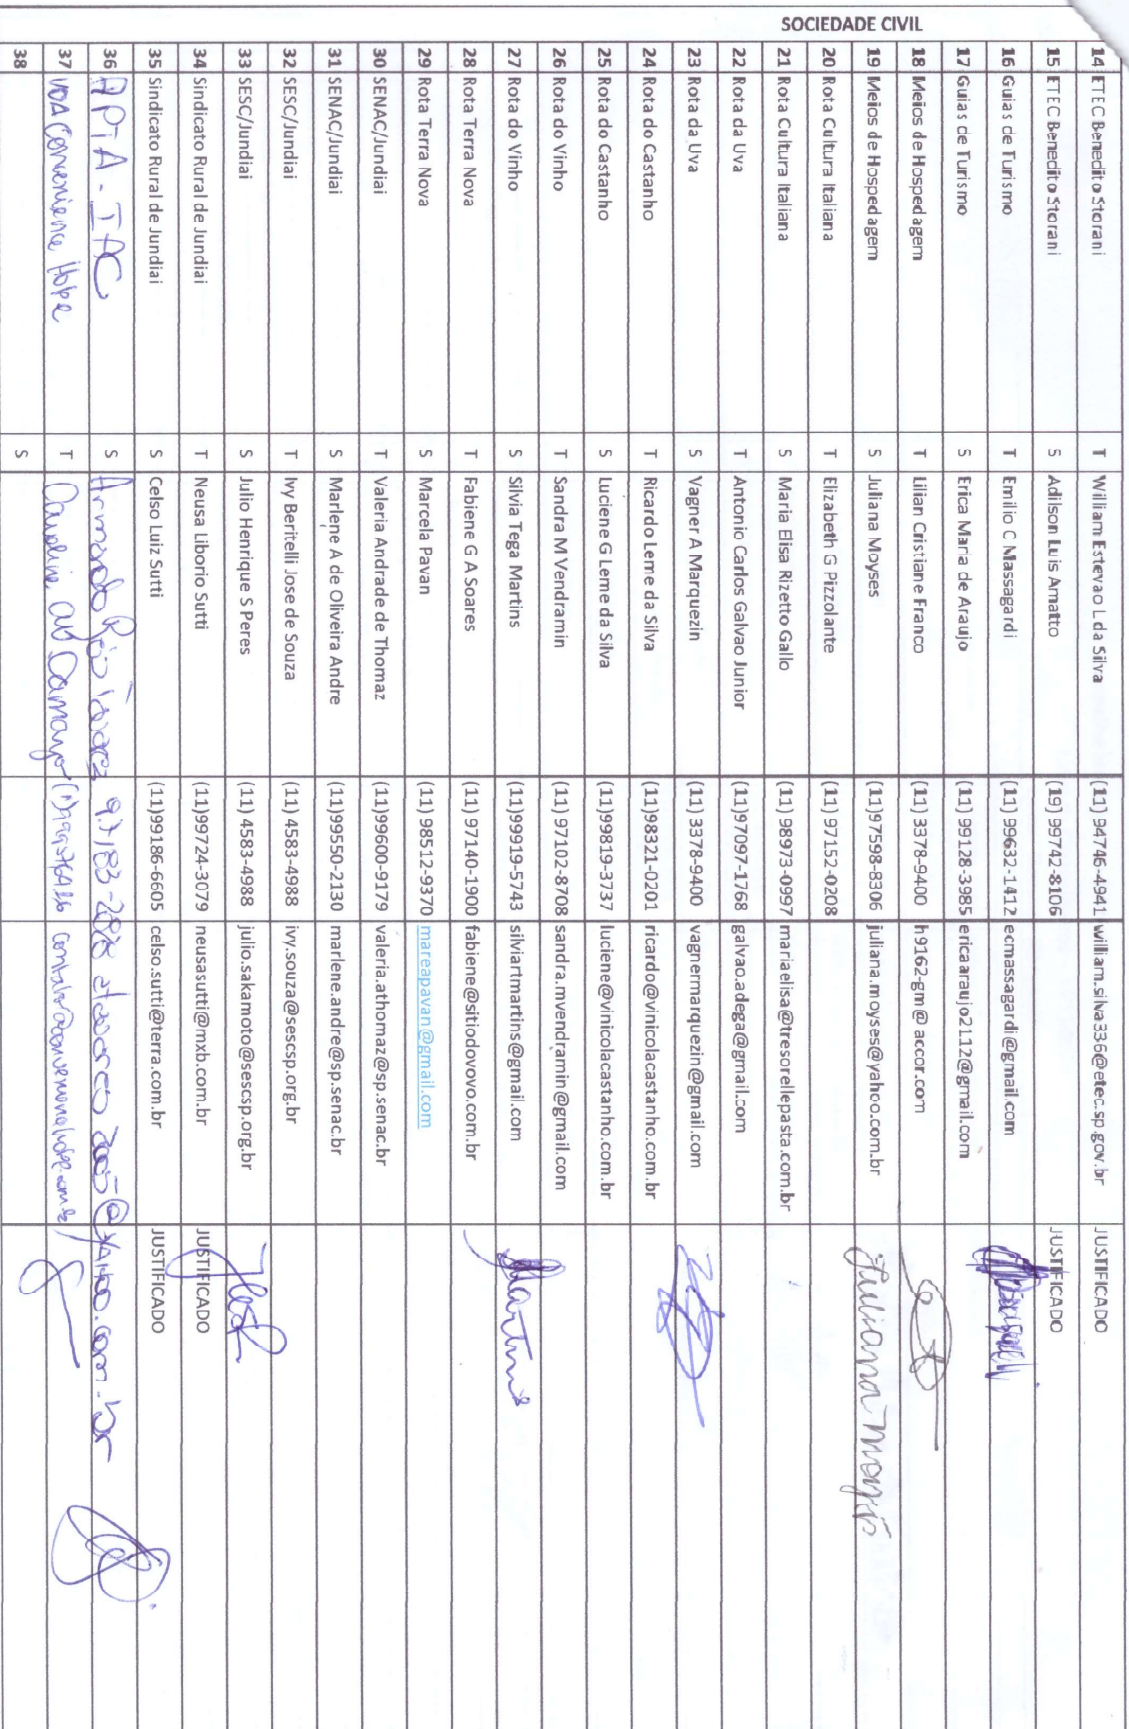 SOCIEDADE CIVIL
14 ETEC Benedito Storani T William Estevao L da Silva (11) 94746-4941 william.silva336@etec.sp.gov.br JUSTIFICADO
15 ETEC Benedito Storani S Adilson Luis Amatto (19) 99742-8106 JUSTIFICADO
16 Guias de Turismo T Emilio C Massagardi (11) 99632-1412 ecmassagardi@gmail.com
17 Guias de Turismo S Erica Maria de Araujo (11) 99128-3985 ericaaraujo2112@gmail.com
18 Meios de Hospedagem T Lilian Cristiane Franco (11) 3378-9400 h9162-gm@accor.com
19 Meios de Hospedagem S Juliana Moyses (11)97598-8306 juliana.moyses@yahoo.com.br Juliana Moysés
20 Rota Cultura Italiana T Elizabeth G Pizzolante (11) 97152-0208
21 Rota Cultura Italiana S Maria Elisa Rizetto Gallo (11) 98973-0997 mariaelisa@tresorellepasta.com.br
22 Rota da Uva T Antonio Carlos Galvao Junior (11)97097-1768 galvao.adega@gmail.com
23 Rota da Uva S Vagner A Marquezin (11) 3378-9400 vagnermarquezini@gmail.com
24 Rota do Castanho T Ricardo Leme da Silva (11)98321-0201 ricardo@vinicolacastanho.com.br
25 Rota do Castanho S Luciene G Leme da Silva (11)99819-3737 luciene@vinicolacastanho.com.br
26 Rota do Vinho T Sandra M Vendramin (11) 97102-8708 sandra.mvendramin@gmail.com
27 Rota do Vinho S Silvia Tega Martins (11)99919-5743 silviartmartins@gmail.com Martins
28 Rota Terra Nova T Fabiene G A Soares (11) 97140-1900 fabiene@sitiodovovo.com.br
29 Rota Terra Nova S Marcela Pavan (11) 98512-9370 mareapavan@gmail.com
30 SENAC/Jundiai T Valeria Andrade de Thomaz (11)99600-9179 valeria.athomaz@sp.senac.br
31 SENAC/Jundiai S Marlene A de Oliveira Andre (11)99550-2130 marlene.andre@sp.senac.br
32 SESC/Jundiai T Ivy Beritelli Jose de Souza (11) 4583-4988 ivy.souza@sescsp.org.br
33 SESC/Jundiai S Julio Henrique S Peres (11) 4583-4988 julio.sakamoto@sescsp.org.br
34 Sindicato Rural de Jundiai T Neusa Liborio Sutti (11)99724-3079 neusasutti@mxb.com.br JUSTIFICADO
35 Sindicato Rural de Jundiai S Celso Luiz Sutti (11)99186-6605 celso.sutti@terra.com.br JUSTIFICADO
36 APTA - IAC S Armando @yahoo.com.br
37 Convenience Hope T Caroline
38 S